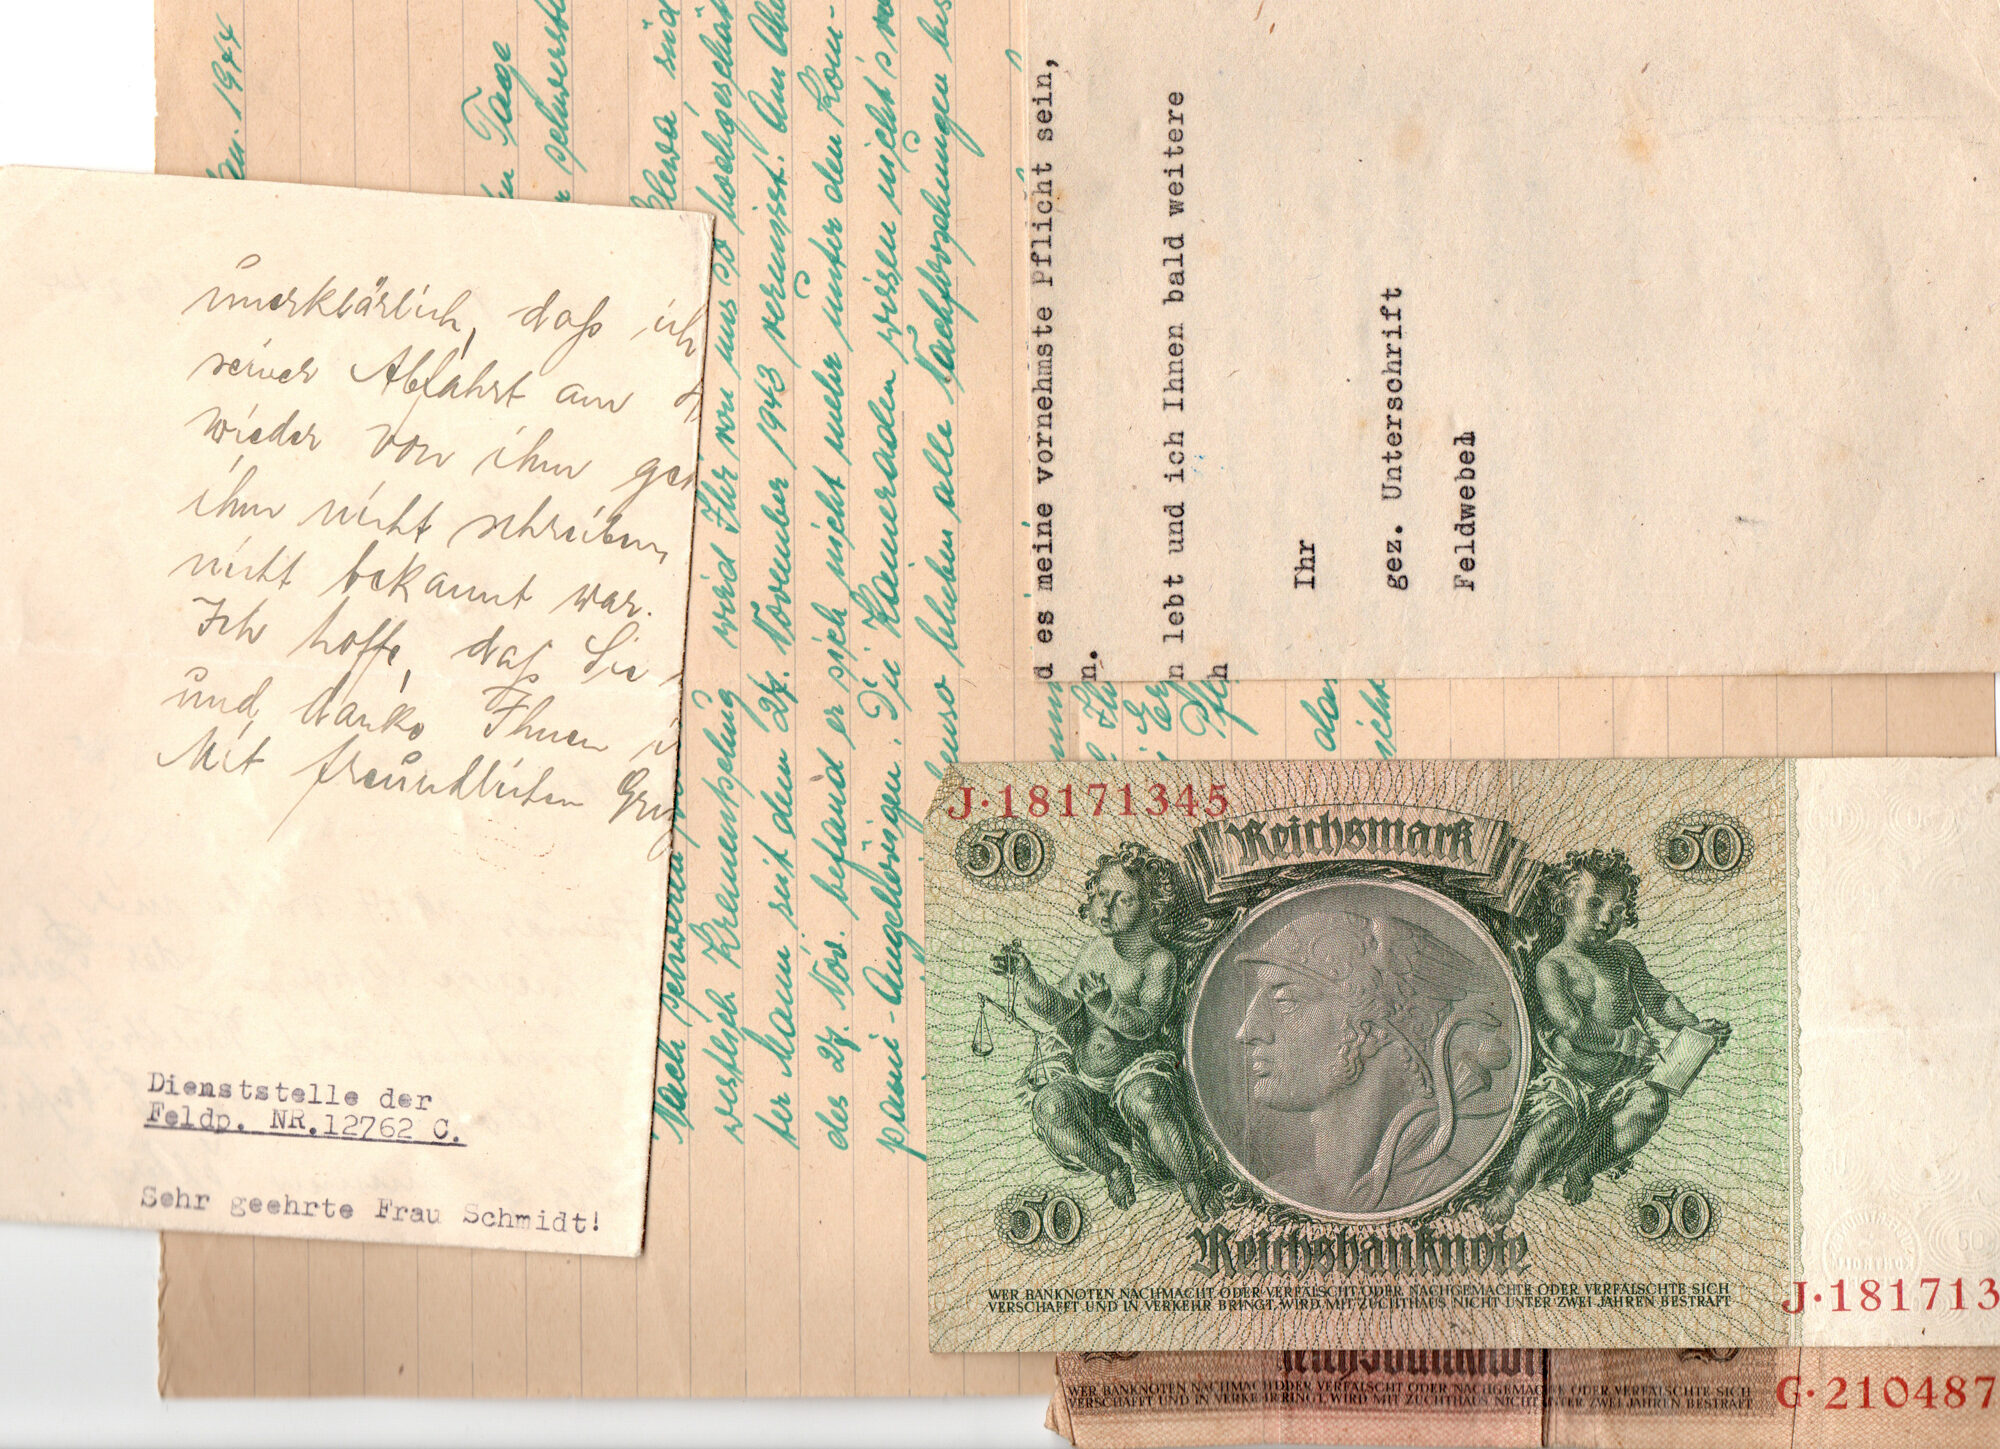 unerklärlich, daß ich
seiner Abfahrt am
wieder von ihm
ihm nicht schreiben,
nicht bekannt war.
Ich hoffe, daß Sie
und danke Ihnen
Mit freundlichen
Dienststelle der
Feldp. NR.12762 C.
Sehr geehrte Frau Schmidt!
1944
Tage
schwerste
Nach schweren
westlich Krementschug wird Ihr von uns so hochgeschät
ter Mann seit dem 27. November 1943 vermisst. Am
des 27. Nov. befand er sich nicht mehr unter den Kom-
panie-Angehörigen. Die Kameraden wissen nicht's
ebenso blieben alle Nachforschungen bis
d es meine vornehmste Pflicht sein,
n.
n lebt und ich Ihnen bald weitere
h
Ihr
gez. Unterschrift
Feldwebel
J·18171345
50
50
Reichsmark
50
50
Reichsbanknote
WER BANKNOTEN NACHMACHT ODER VERFÄLSCHT ODER NACHGEMACHTE ODER VERFÄLSCHTE SICH
VERSCHAFFT UND IN VERKEHR BRINGT, WIRD MIT ZUCHTHAUS NICHT UNTER ZWEI JAHREN BESTRAFT
J·181713
Reichsbanknot
WER BANKNOTEN NACHMACHT ODER VERFÄLSCHT ODER NACHGEMACHTE ODER VERFÄLSCHTE SICH
VERSCHAFFT UND IN VERKEHR BRINGT, WIRD MIT ZUCHTHAUS NICHT UNTER ZWEI JAHREN BESTRAFT
G·210487